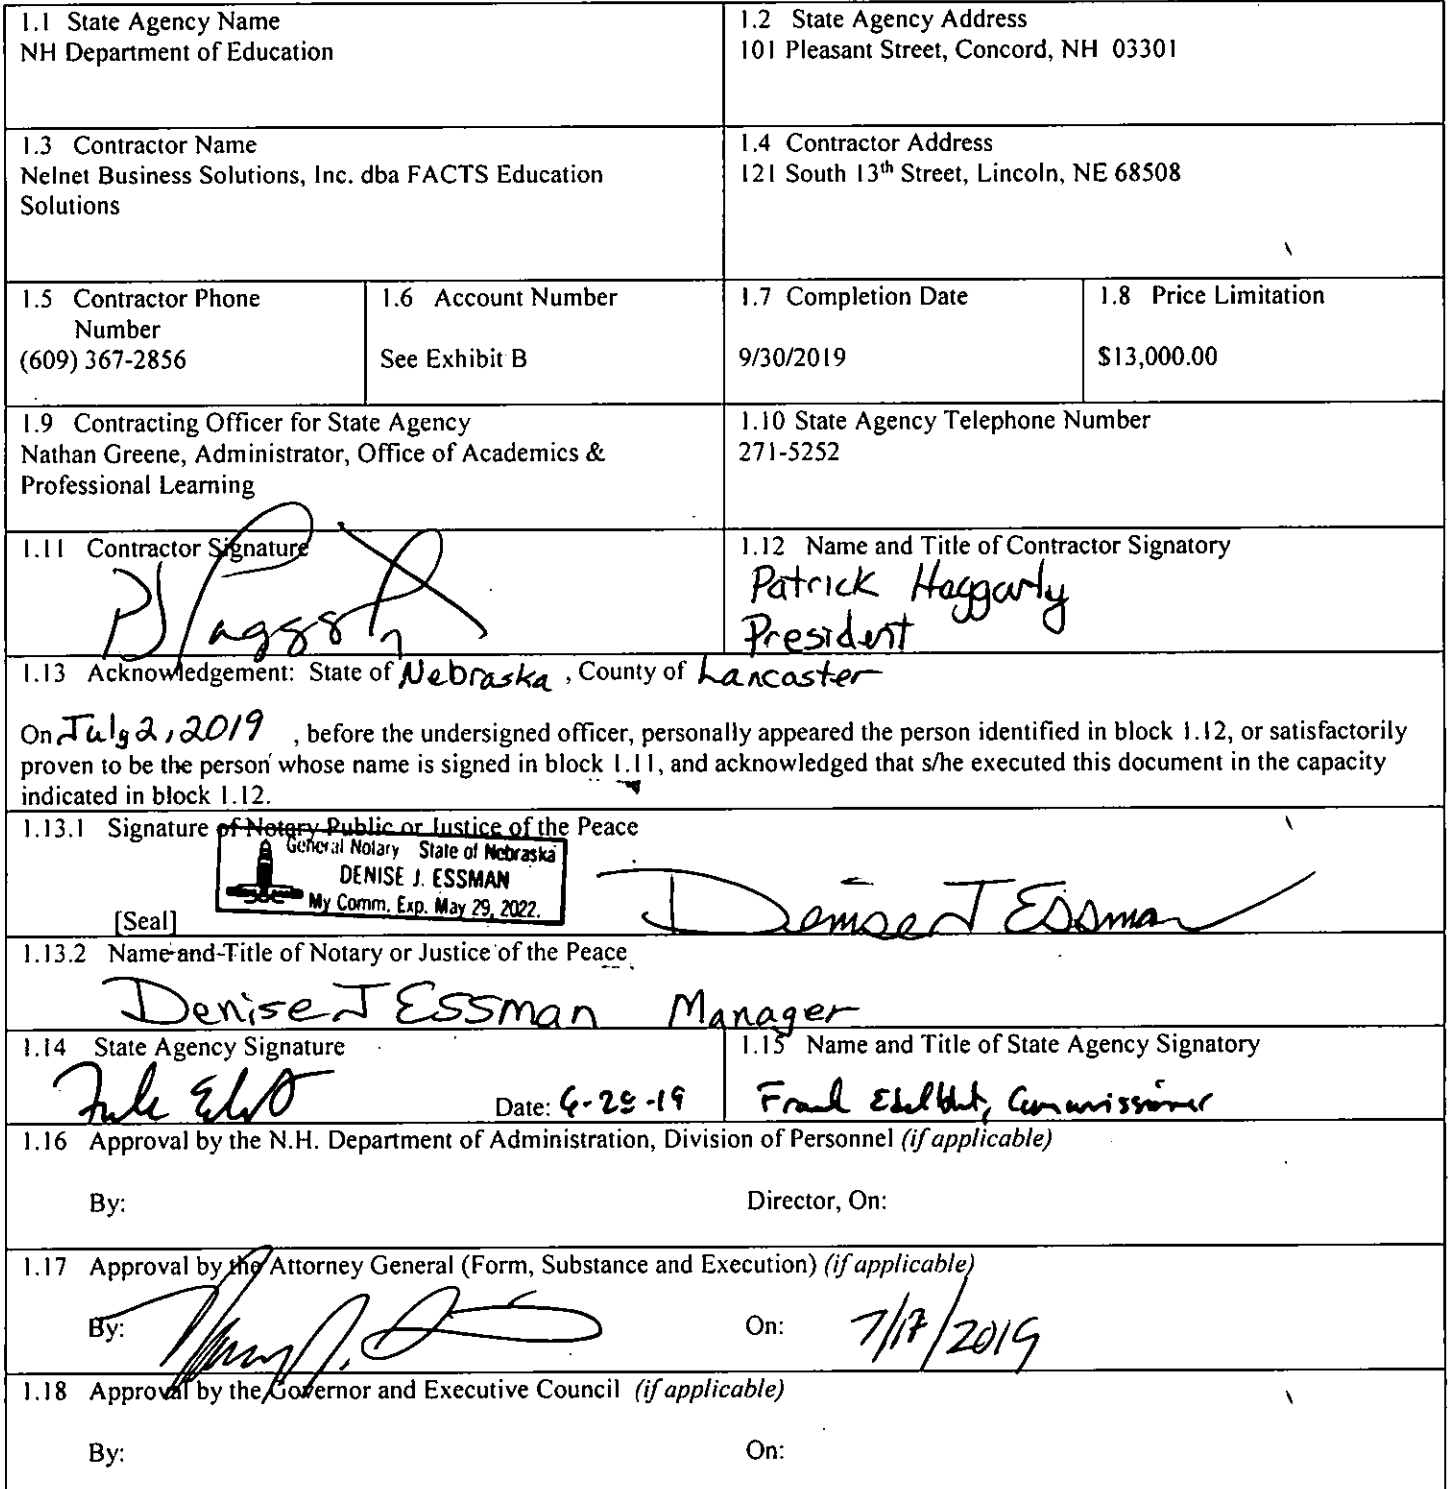 1.1 State Agency Name
NH Department of Education
1.2 State Agency Address
101 Pleasant Street, Concord, NH 03301
1.3 Contractor Name
Nelnet Business Solutions, Inc. dba FACTS Education
Solutions
1.4 Contractor Address
121 South 13th Street, Lincoln, NE 68508
1.5 Contractor Phone
Number
(609) 367-2856
1.6 Account Number
See Exhibit B
1.7 Completion Date
9/30/2019
1.8 Price Limitation
$13,000.00
1.9 Contracting Officer for State Agency
Nathan Greene, Administrator, Office of Academics &
Professional Learning
1.10 State Agency Telephone Number
271-5252
1.11 Contractor Signature
1.12 Name and Title of Contractor Signatory
Patrick Haggarty
President
1.13 Acknowledgement: State of Nebraska, County of Lancaster
On July 2, 2019, before the undersigned officer, personally appeared the person identified in block 1.12, or satisfactorily
proven to be the person whose name is signed in block 1.11, and acknowledged that s/he executed this document in the capacity
indicated in block 1.12.
1.13.1 Signature of Notary Public or Justice of the Peace
General Notary State of Nebraska
DENISE J. ESSMAN
My Comm. Exp. May 29, 2022.
[Seal]
Denise J Essman
1.13.2 Name and Title of Notary or Justice of the Peace
Denise J Essman Manager
1.14 State Agency Signature
Date:
1.15 Name and Title of State Agency Signatory
Frank Edelblut, Commissioner
1.16 Approval by the N.H. Department of Administration, Division of Personnel (if applicable)
By:
Director, On:
1.17 Approval by the Attorney General (Form, Substance and Execution) (if applicable)
By:
On: 7/17/2019
1.18 Approval by the Governor and Executive Council (if applicable)
By:
On: